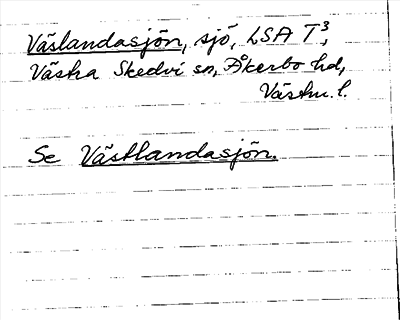 Väslandasjön, sjö, LSA T³,
Västra Skedvi sn, Åkerbo hd,
Västm. l.
Se Västlandasjön.